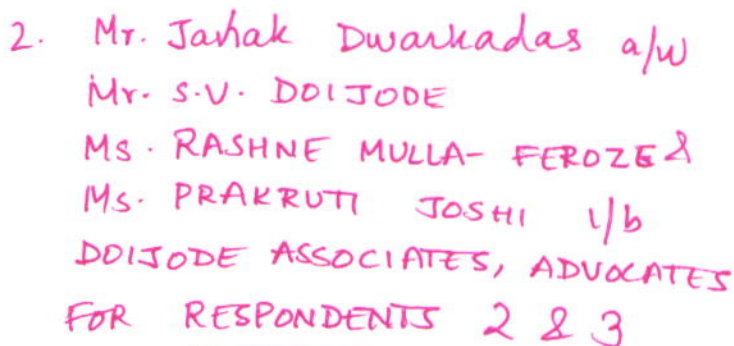 2. Mr. Janak Dwarkadas a/w
Mr. S.V. DOIJODE
MS. RASHNE MULLA- FEROZE &
Ms. PRAKRUTI JOSHI i/b
DOIJODE ASSOCIATES, ADVOCATES
FOR RESPONDENTS 2 & 3